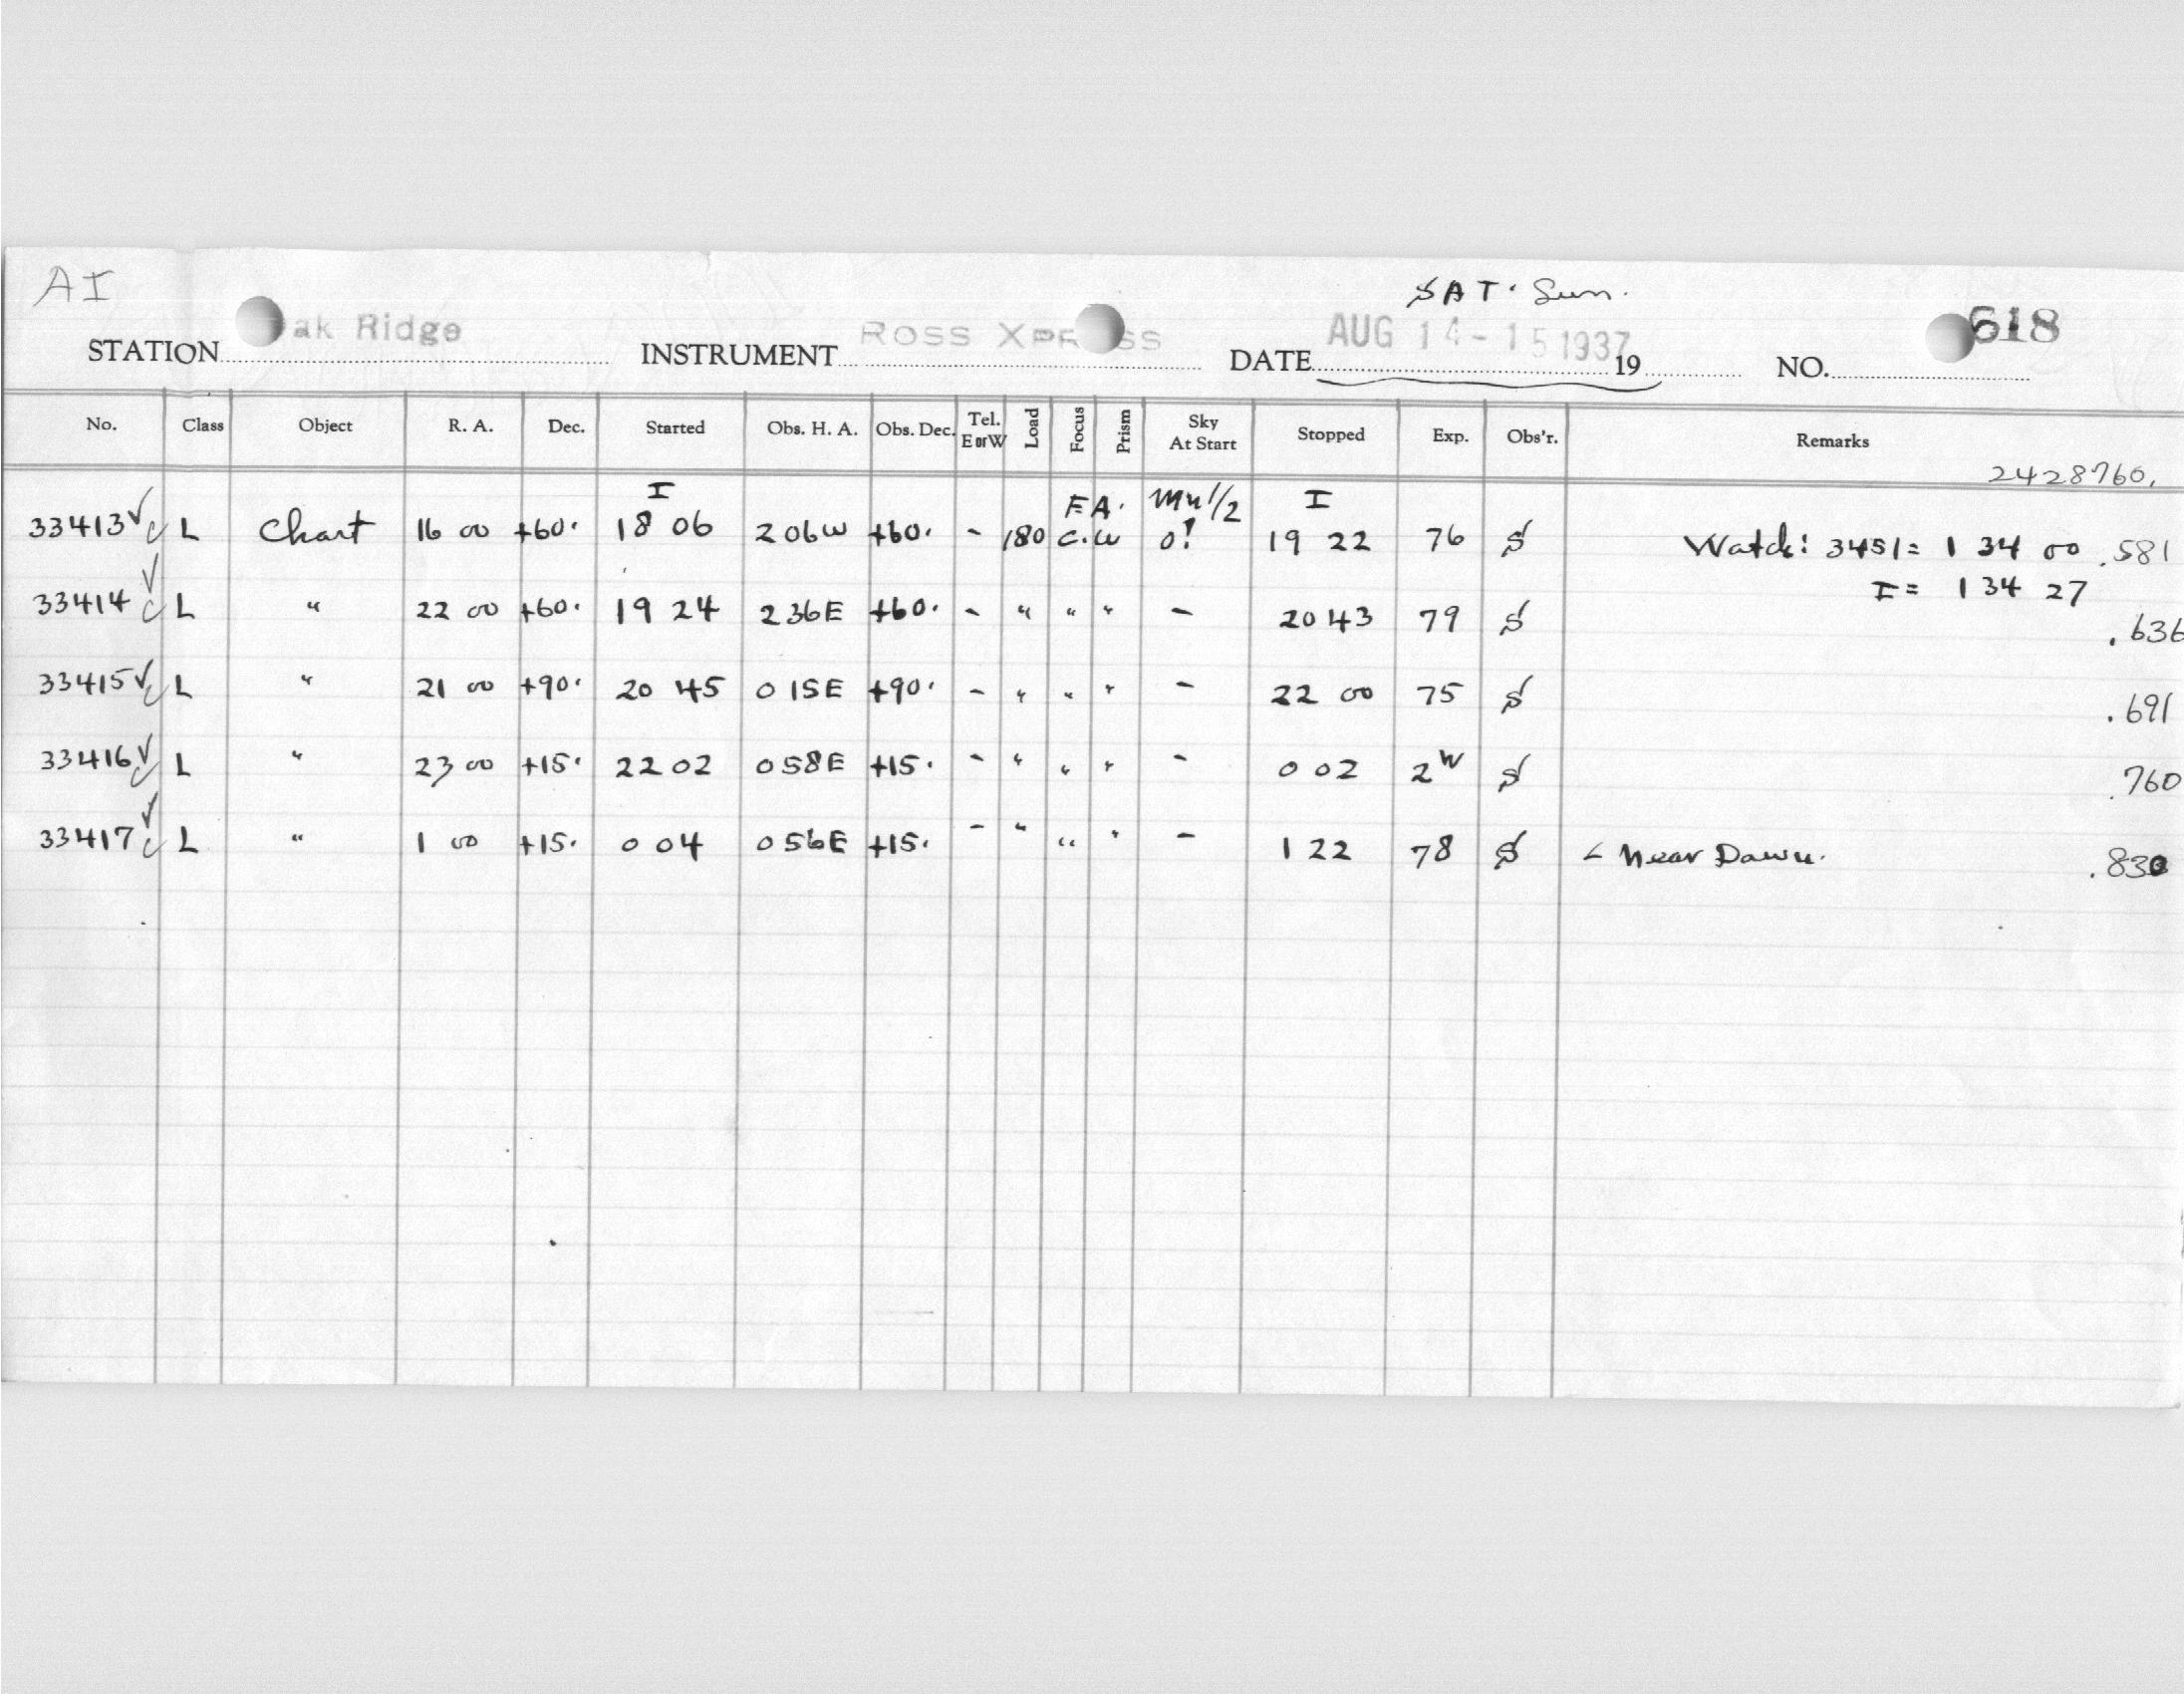 AI
SAT. Sun.
STATION ak Ridge INSTRUMENT ROSS XPR SS DATE AUG 14-15 1937 19 NO. 618
No. Class Object R. A. Dec. Started Obs. H. A. Obs. Dec. Tel. E or W Load Focus Prism Sky At Start Stopped Exp. Obs'r. Remarks
2428760.
I F A. Mn 1/2 I
33413 L Chart 16 00 +60. 18 06 2 06W +60. - 180 C.W 0! 19 22 76 S Watch: 3451= 1 34 00 .581
I= 1 34 27
33414 L " 22 00 +60. 19 24 2 36E +60. - " " " - 20 43 79 S .636
33415 L " 21 00 +90. 20 45 0 15E +90. - " " " - 22 00 75 S .691
33416 L " 23 00 +15. 22 02 0 58E +15. - " " " - 0 02 2 S .760
33417 L " 1 00 +15. 0 04 0 56E +15. - " " " - 1 22 78 S Near Dawn. .830